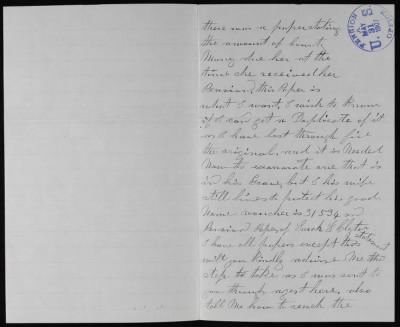 PENSION OFFICE
U.S.
MAY
there was a paper stating
the amount of bounty
Money due her at the
time she received her
Pension, this Paper is
what I want, I wish to Know
if I can get a Duplicate of it
as I have lost through fire
the original, and it is Needed
Now to one that is
in his Grave, but I his wife
still lives to protect his good
Name voucher is 31534 on
Pension Paper of Sarah E
I have all papers except this statement
will you Kindly advise Me the
step to take as I was sent to
you through agent here, also
tell Me how to reach the